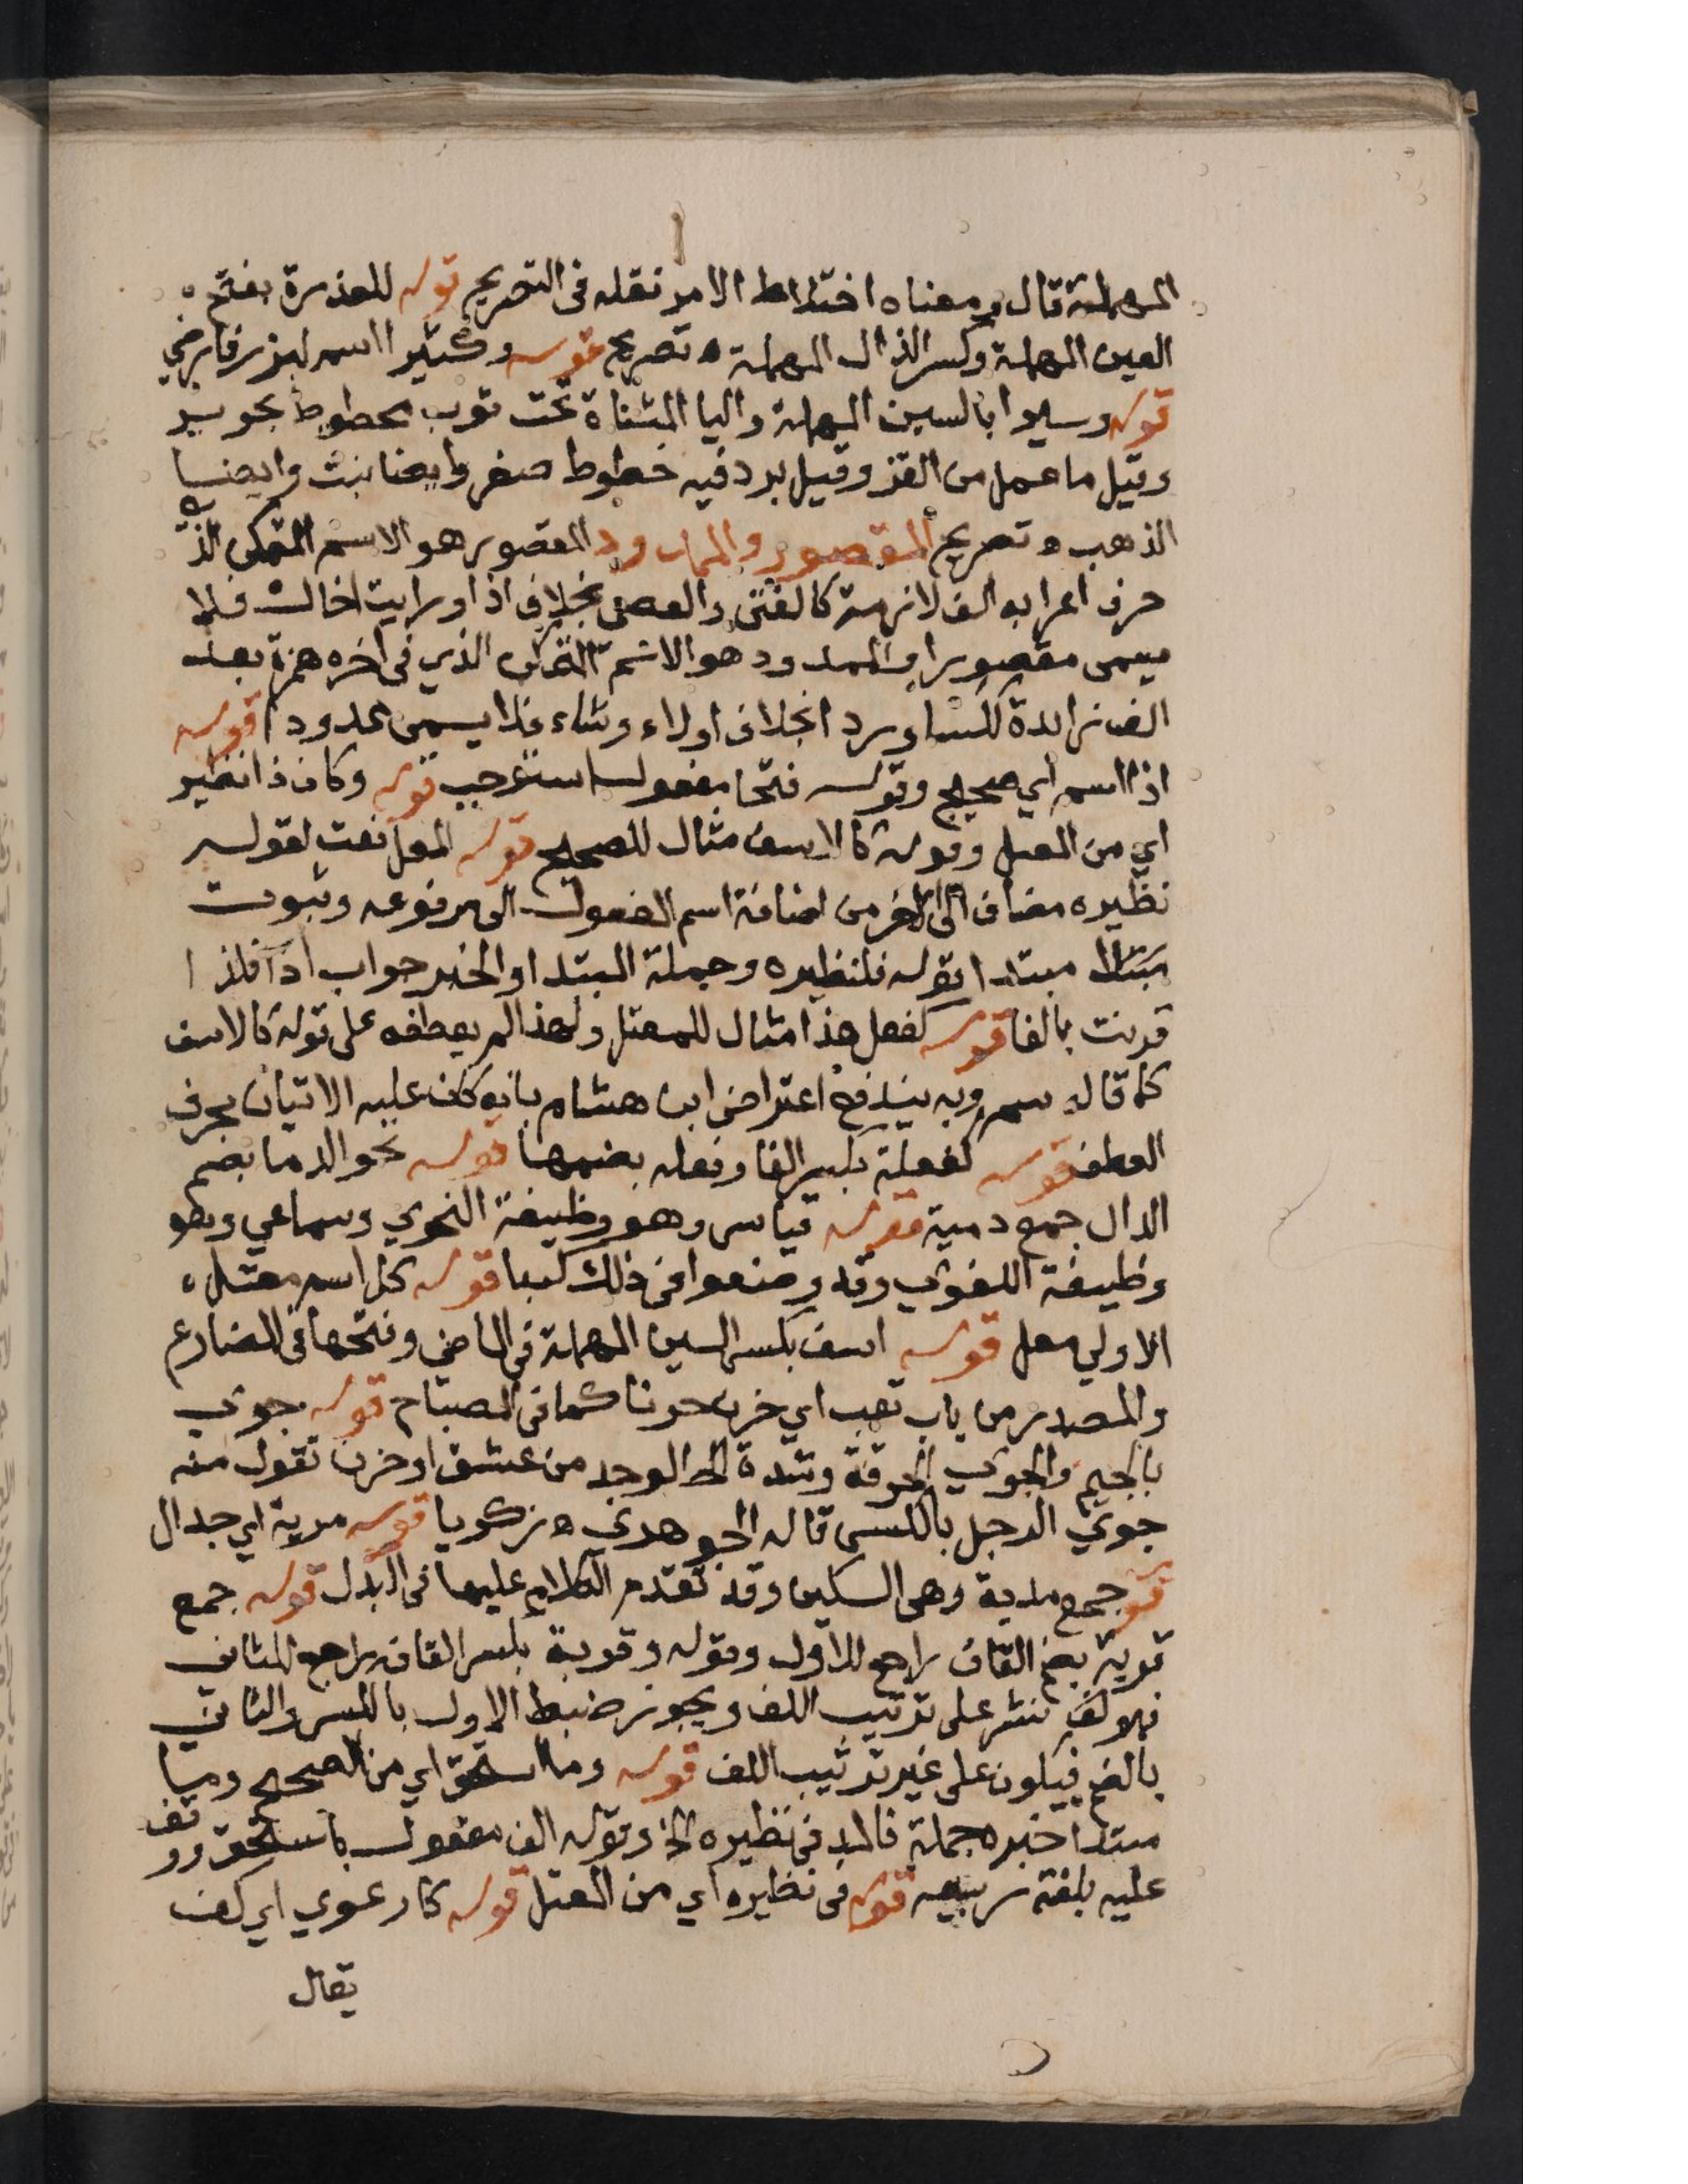 المهملة قال ومعناه اختلاط الامر نقله فى التصريح قوله للعذرة بفتح
العين المهملة وكسر الذال المهملة ه تصريح قوله وكثير اسم لبزر فارضي
قوله وسيرا بالسين المهملة واليا المثناة تحت ثوب مخطوط بحرير
وقيل ما عمل من القز وقيل برد فيه خطوط صفر وايضا نبت وايضا
الذهب ه تصريح المقصور والممدود المقصور هو الاسم المتمكن الذي
حرف اعرابه الف لازمة كالفتى والعصى بخلاف اذا ورايت اخاك فلا
يسمى مقصورا والممدود هو الاسم المتمكن الذي فى اخره همزة بعد
الف زايدة ككساء وردا بخلاف اولاء وشاء فلا يسمى ممدودا قوله
اذا اسم اي صحيح وقوله فتحا مفعول استوجب قوله وكان ذا نظير
اي من المعتل وقوله كالاسف مثال للصحيح قوله المعل نعت لقوله
نظيره مضاف الى الاخر من اضافة اسم المفعول الى مرفوعه وثبوت
مبتدا بقوله فلنظيره وجملة المبتدا والخبر جواب اذا فلذا
قرنت بالفا قوله كفعل هذا مثال للمعتل ولهذا لم يعطفه على قوله كالاسف
كما قاله سم وبه يندفع اعتراض ابن هشام بانه كان عليه الاتيان بحرف
العطف قوله كفعلة بكسر الفا وفعله بضمها قوله نحو الدما بضم
الدال جمع دمية قوله قياسى وهو وظيفة النحوي وسماعي وهو
وظيفة اللغوي وقد وضعوا فى ذلك كتبا قوله كل اسم معتل
الاولي معل قوله اسف بكسر السين المهملة فى الماضي وفتحها فى المضارع
والمصدر من باب تعب اي حزن حزنا كما فى المصباح قوله جوي
بالجيم والجوي الحرقة وشدة الوجد من عشق او حزن تقول منه
جوي الرجل بالكسر قاله الجوهري ه زكريا قوله مرية اي جدال
قو جمع مدية وهى السكين وقد تقدم الكلام عليها فى البدل قوله جمع
قربة بضم القاف راجع للاول وقوله وقربة بكسر القاف راجع للثاني
فهو لف ونشر على ترتيب اللف ويجوز ضبط الاول بالكسر والثاني
بالضم فيكون على غير ترتيب اللف قوله وما استحق اي من الصحيح وما
مبتدا خبره جملة فالمد فى نظيره الخ وقوله الف مفعول باستحق ووقف
عليه بلغة ربيعه قوله فى نظيره اي من المعتل قوله كارعوي اي كف
يقال